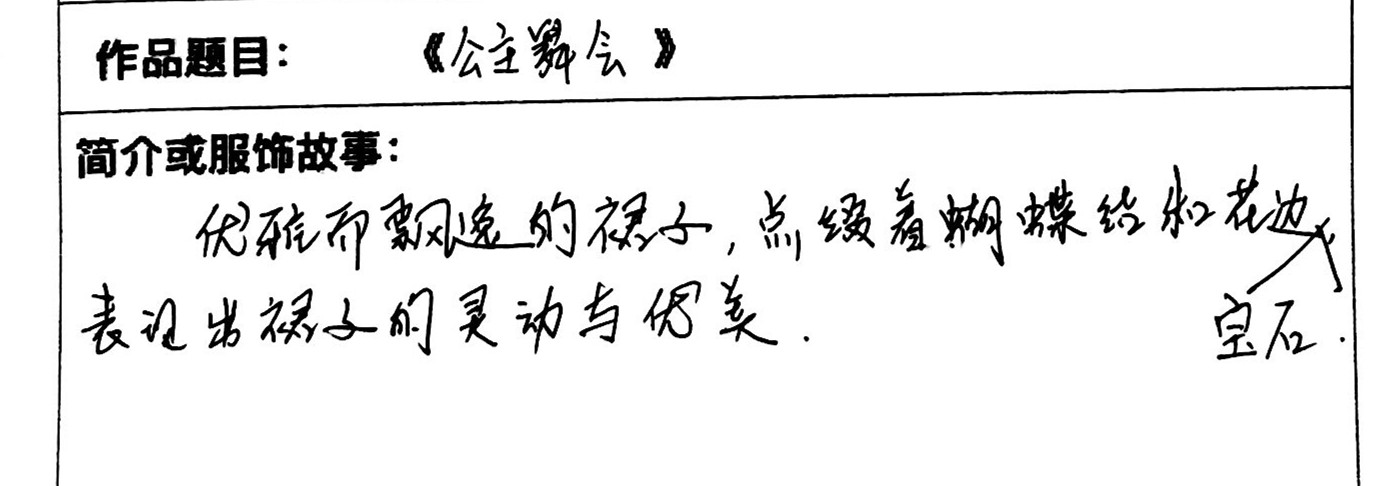 作品题目： 《公主舞会》
简介或服饰故事：
优雅而飘逸的裙子，点缀着蝴蝶结和花边
表现出裙子的灵动与优美.
宝石.